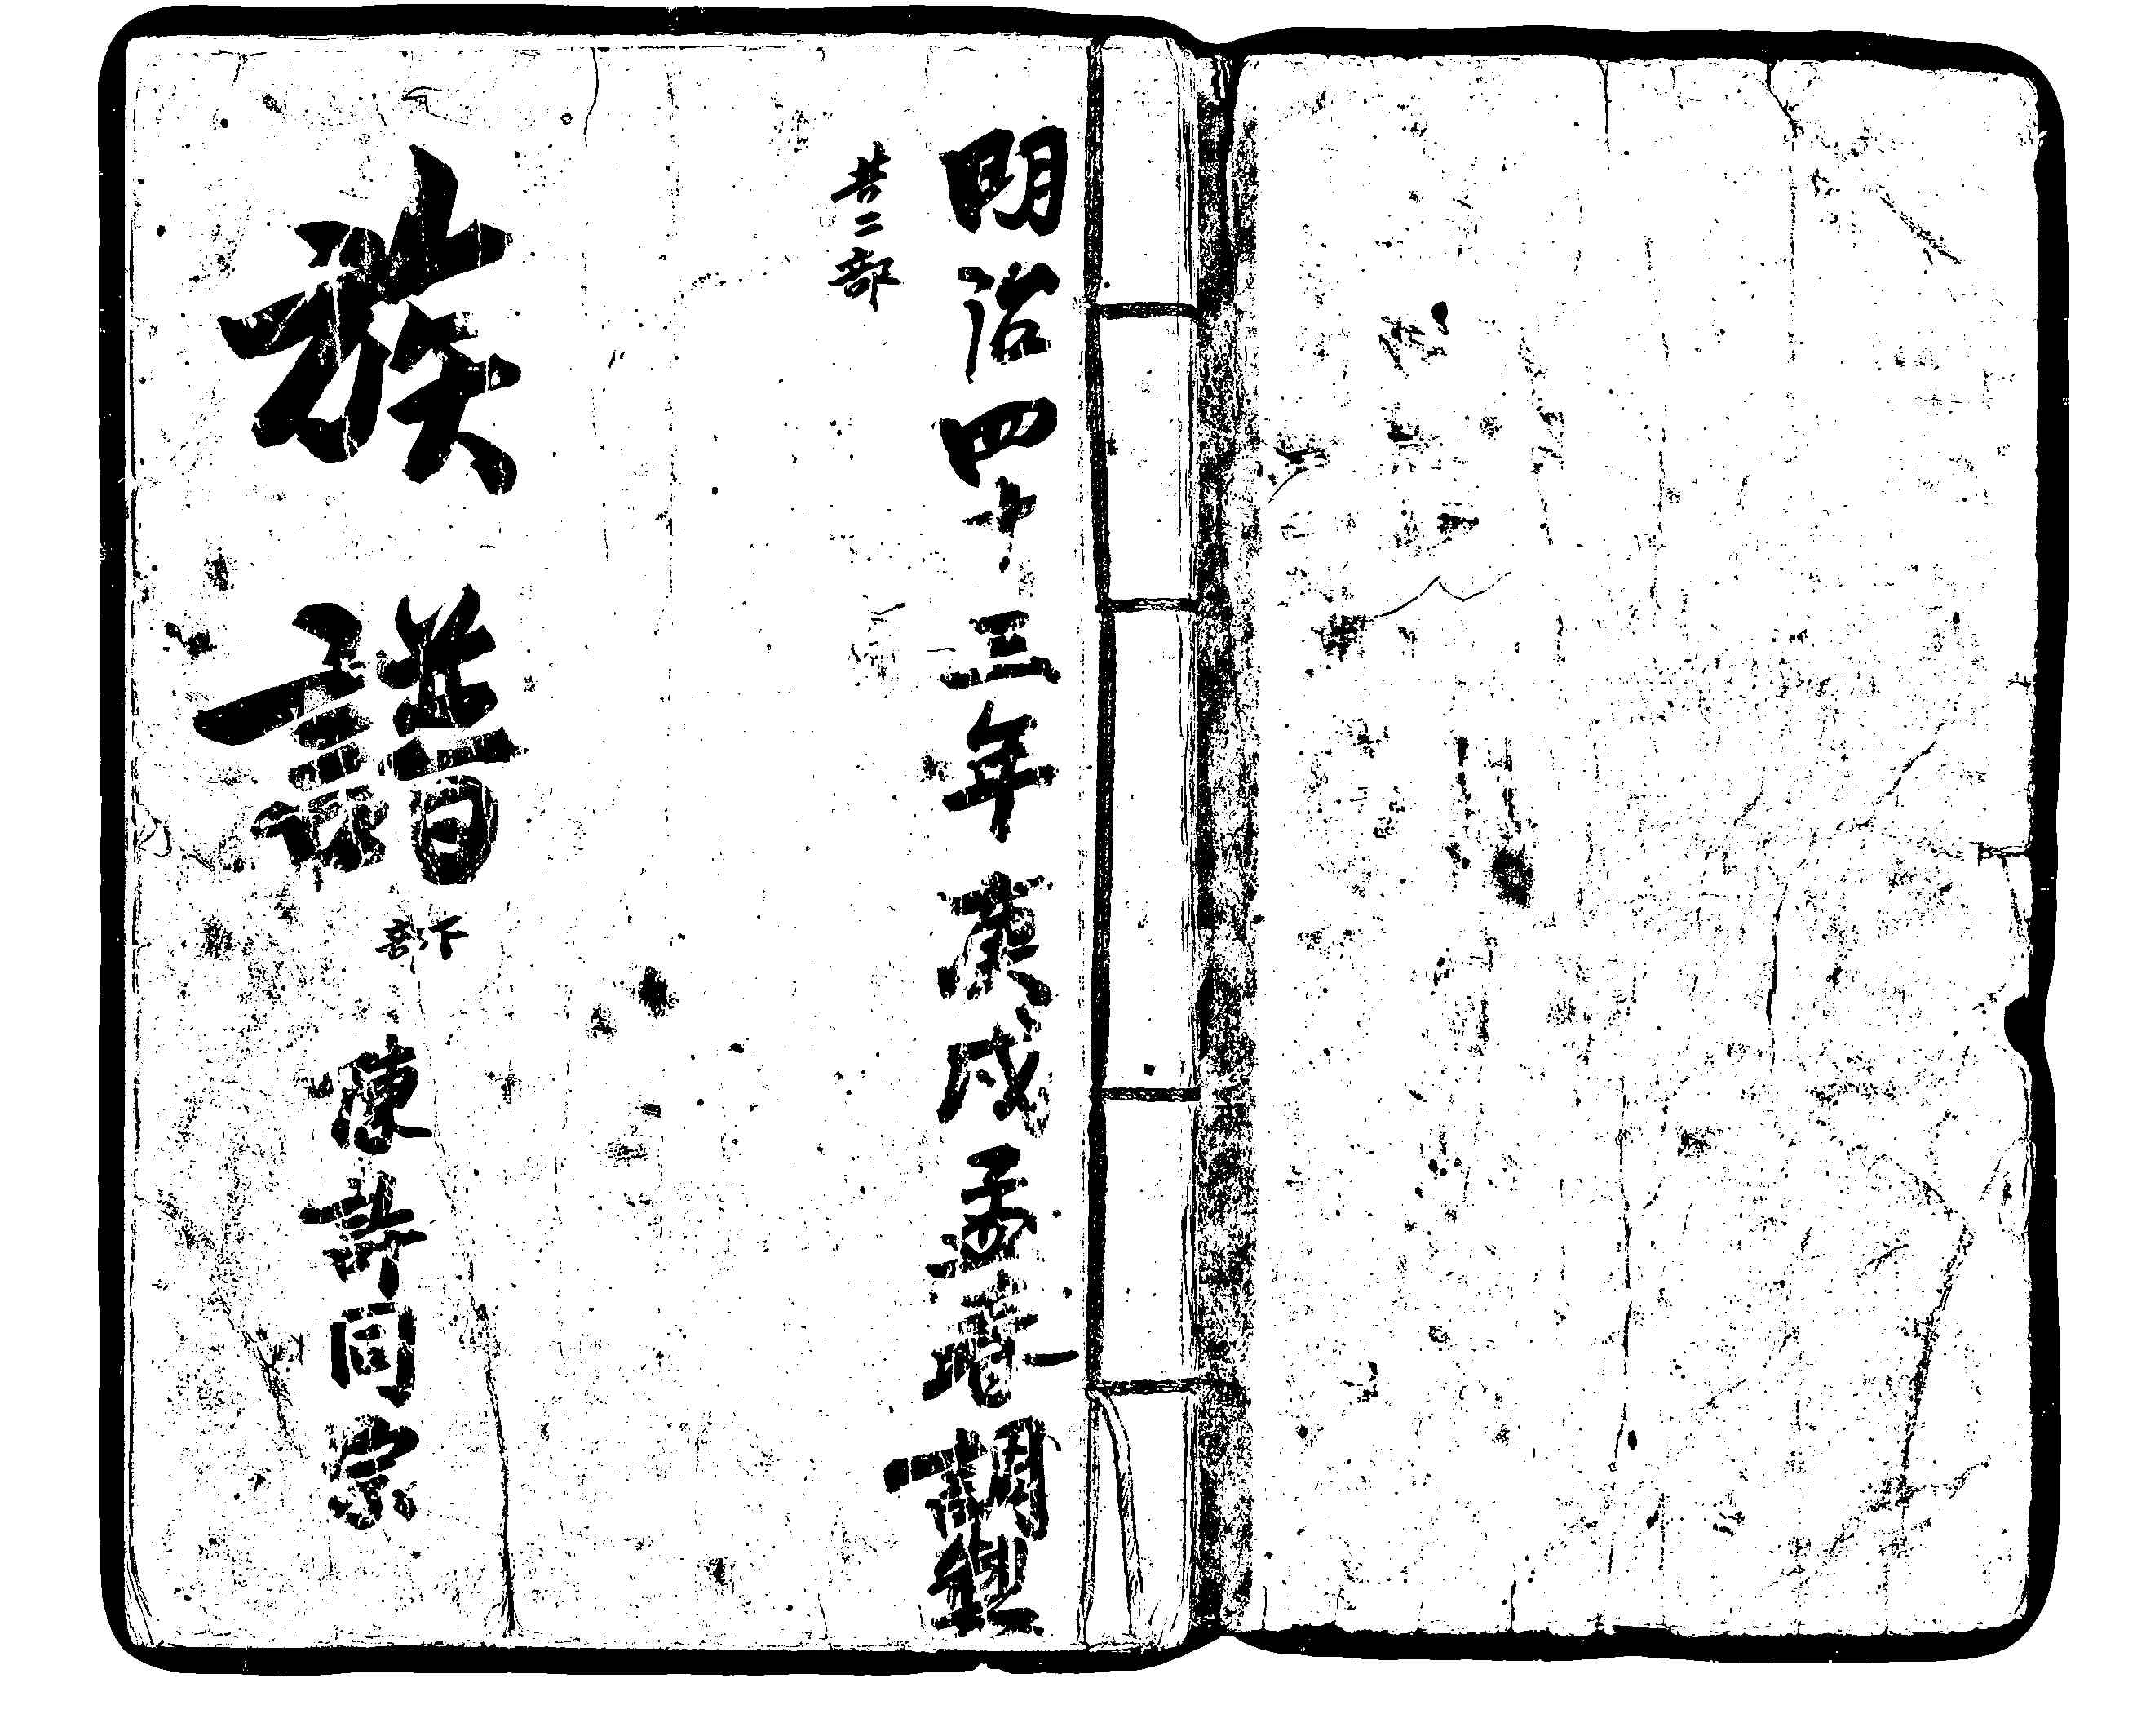 明治四十三年庚戌孟春調製
共二部
族譜
下部
陳許同宗